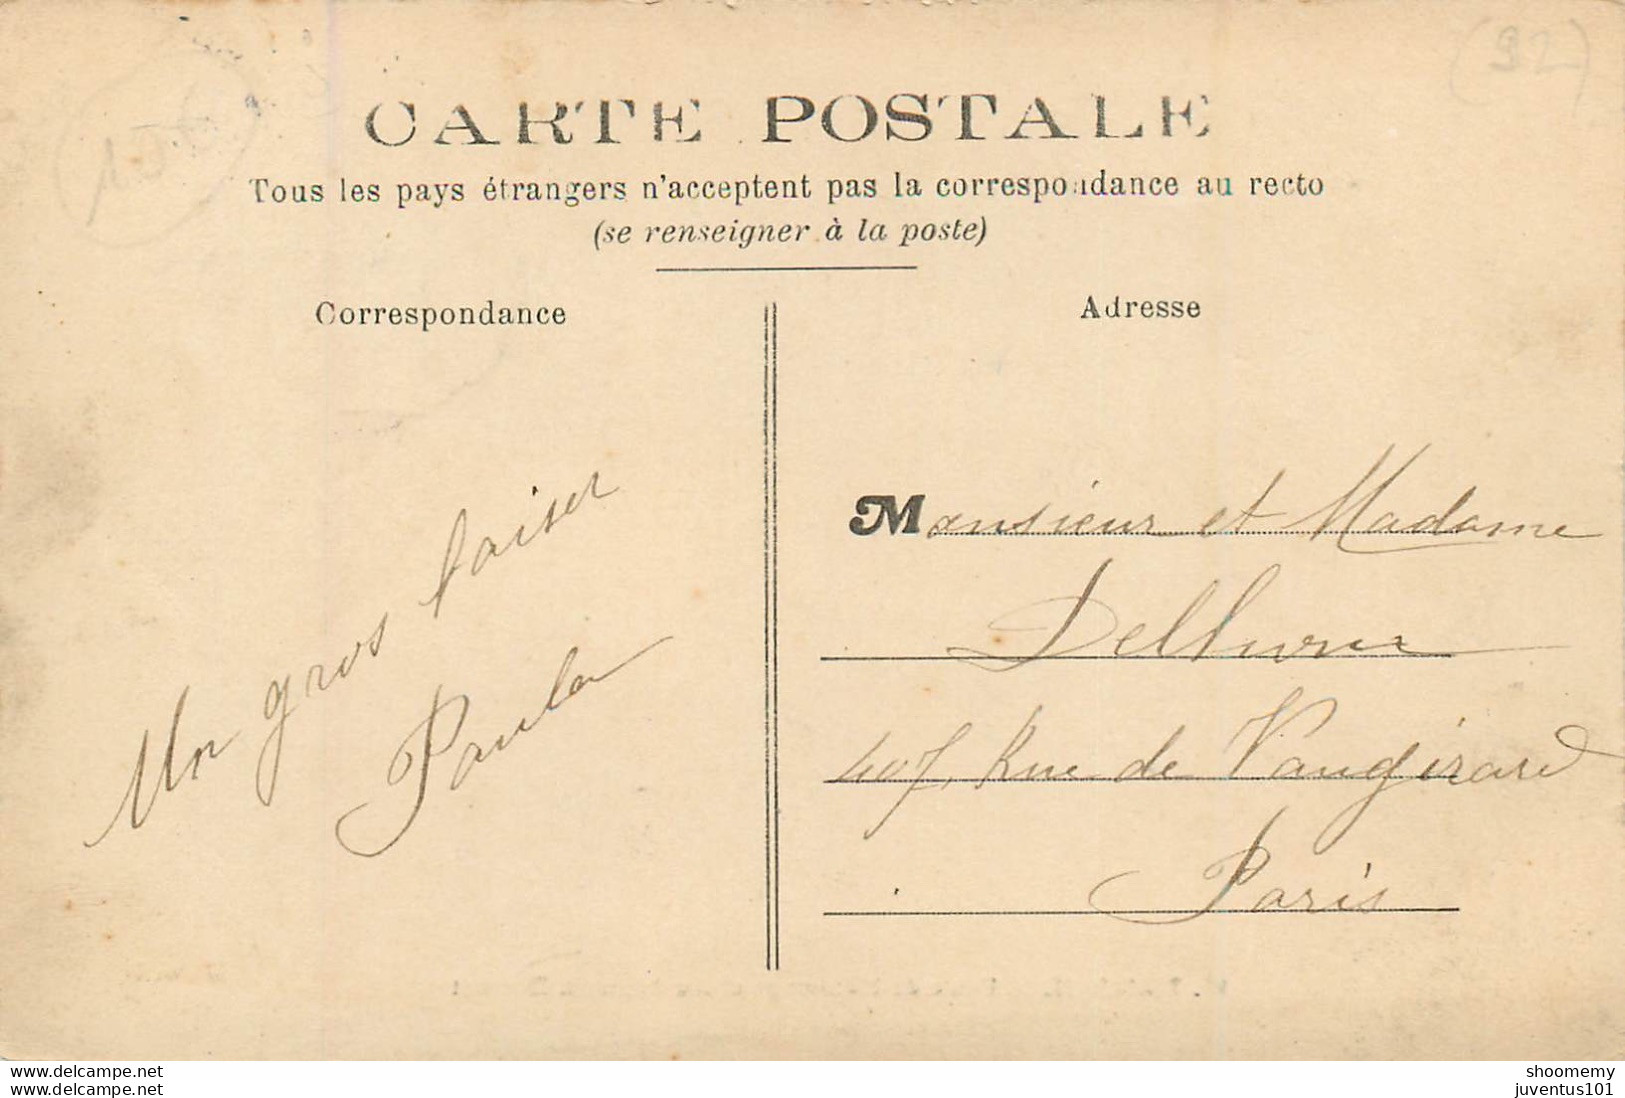 (92)
CARTE POSTALE
Tous les pays étrangers n'acceptent pas la correspondance au recto
(se renseigner à la poste)
Correspondance
Un gros baiser
Paula
Adresse
Monsieur et Madame
407, Rue de Vaugirard
Paris
https://www.delcampe.net
https://www.delcampe.net
shoomemy
juventus101